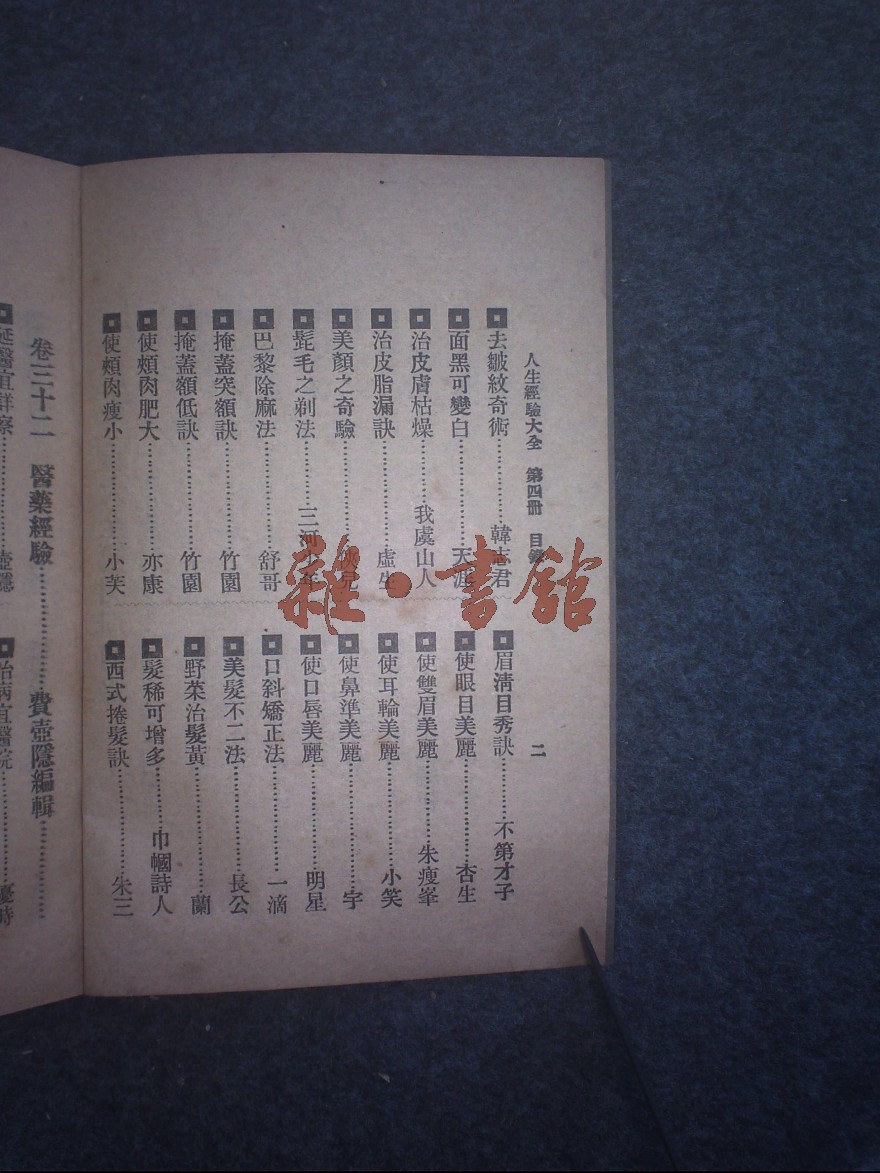 人生經驗大全 第四冊 目錄 二
去皺紋奇術……………韓志君
面黑可變白……………天涯
治皮膚枯燥……………我虞山人
治皮脂漏訣……………虛生
美顏之奇驗……………
髭毛之剃法……………三河少年
巴黎除麻法……………舒哥
掩蓋突額訣……………竹園
掩蓋額低訣……………竹園
使頰肉肥大……………亦康
使頰肉瘦小……………小芙
眉清目秀訣……………不第才子
使眼目美麗……………杏生
使雙眉美麗……………朱瘦峯
使耳輪美麗……………小笑
使鼻準美麗……………宇
使口唇美麗……………明星
口斜矯正法……………一滴
美髮不二法……………長公
野菜治髮黃……………蘭
髮稀可增多……………巾幗詩人
西式捲髮訣……………朱三
卷三十二 醫藥經驗……………費壺隱編輯……………
延醫宜詳察……………壺隱
治病宜醫院……………憂時
雜·書館